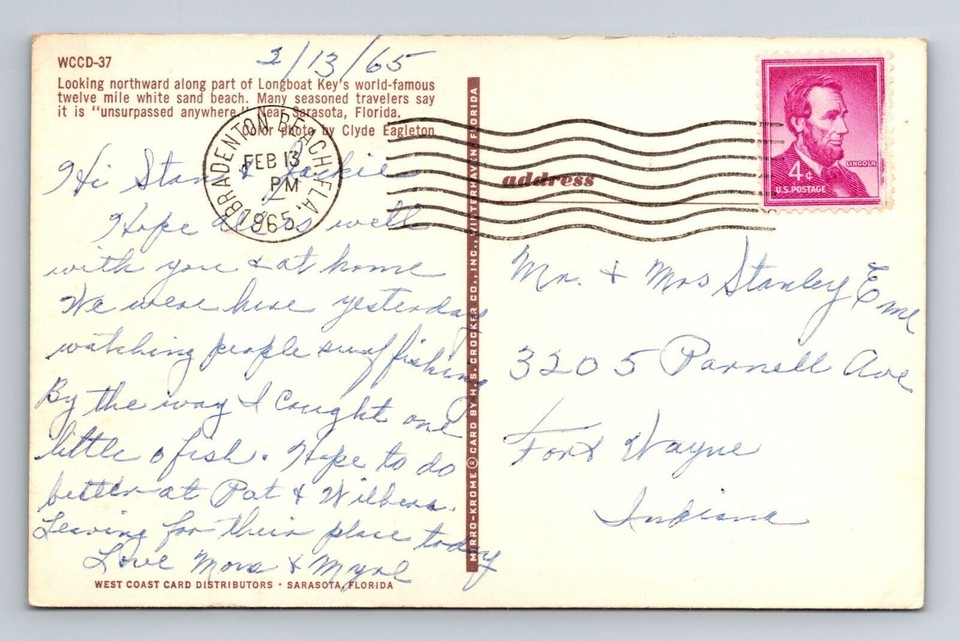 WCCD-37
2/13/65
Looking northward along part of Longboat Key's world-famous
twelve mile white sand beach. Many seasoned travelers say
it is "unsurpassed anywhere." Near Sarasota, Florida.
Color photo by Clyde Eagleton
BRADENTON BEACH, FLA.
FEB 13
PM
1965
Hi Stan & Jackie
Hope all is well
with you & at home
We were here yesterday
watching people surf fishing
By the way I caught one
little o fish. Hope to do
better at Pat & Wilburs.
Leaving for their place today
Love Mora & Myrl
WEST COAST CARD DISTRIBUTORS • SARASOTA, FLORIDA
MIRRO-KROME ® CARD BY H. S. CROCKER CO., INC., WINTERHAVEN, FLORIDA
address
LINCOLN
4¢
U.S. POSTAGE
Mr. & Mrs Stanley
3205 Parnell Ave
Fort Wayne
Indiana